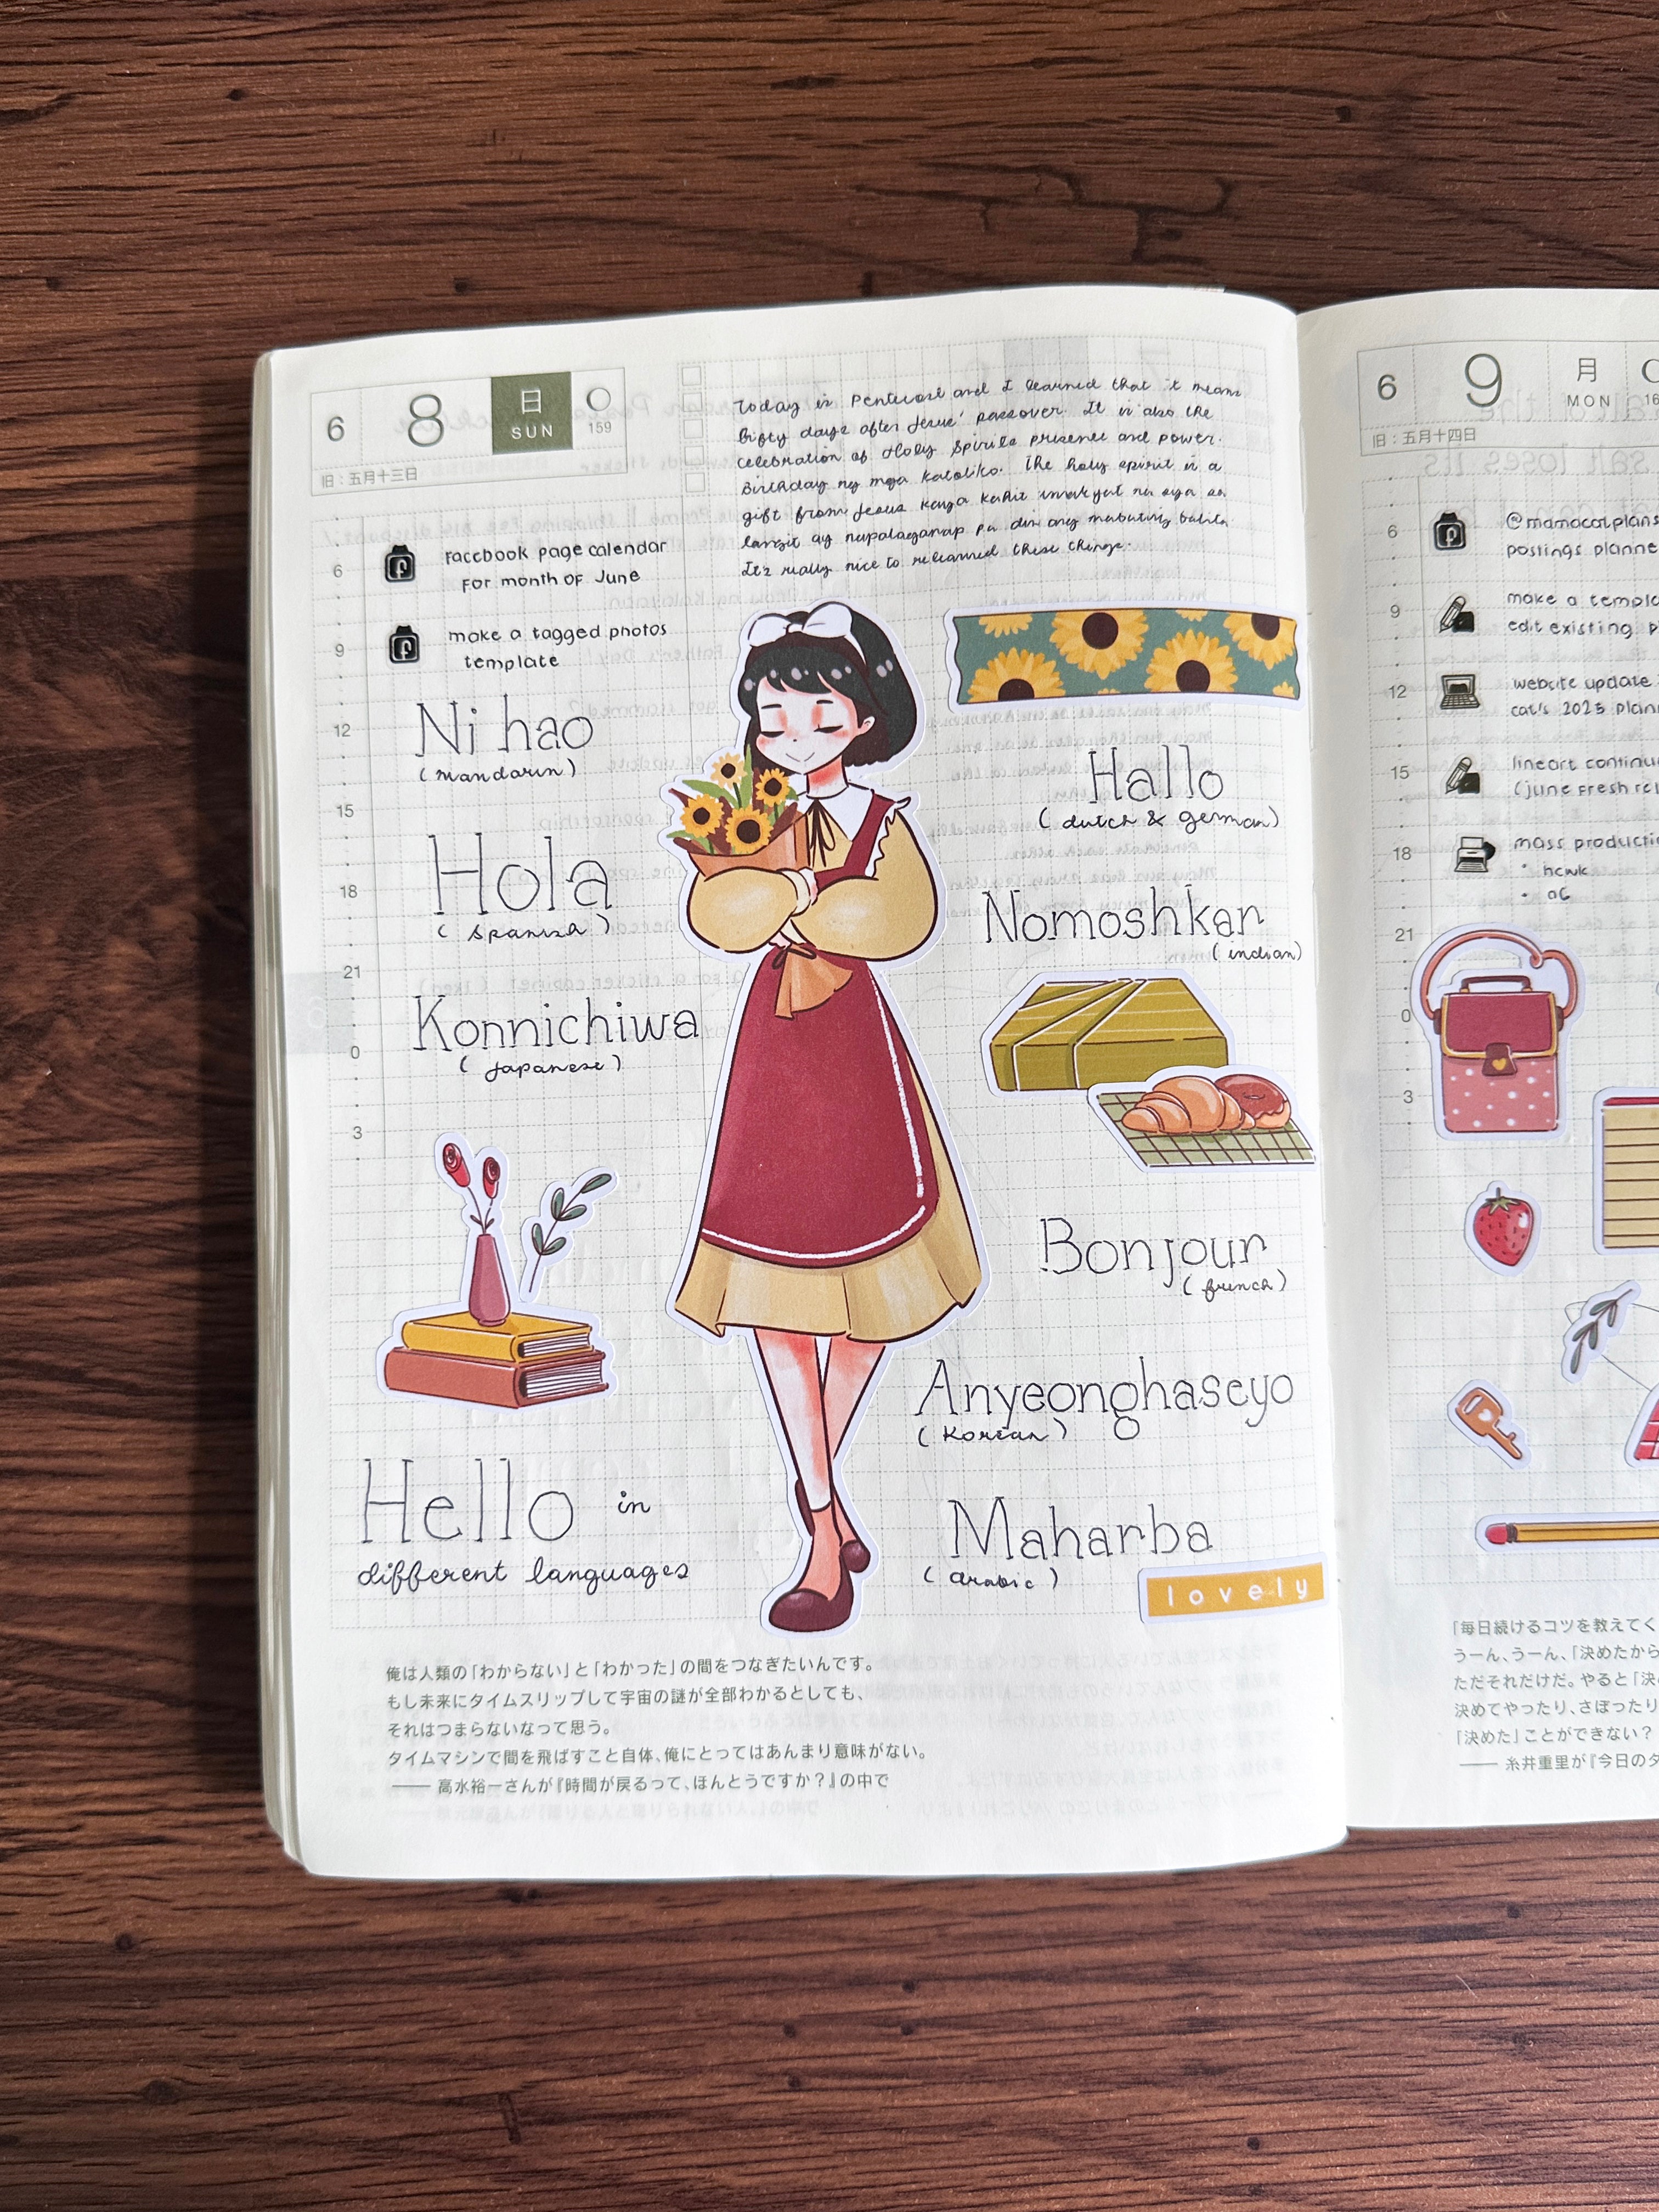 6 8 日 SUN 159
旧：五月十三日
Today is Pentecost and I learned that it means
fifty days after Jesus' passover. It is also the
celebration of Holy Spirits presence and power.
Birthday ng mga Katoliko. The holy spirit is a
gift from Jesus kaya kahit umakyat na sya sa
langit ay napalaganap pa din ang mabuting balita.
It's really nice to relearned these things.
facebook page calendar
for month of June
make a tagged photos
template
6
9
12
15
18
21
0
3
Ni hao
(mandarin)
Hola
(spanish)
Konnichiwa
(japanese)
Hello in
different languages
Hallo
(dutch & german)
Nomoshkar
(indian)
Bonjour
(french)
Anyeonghaseyo
(Korean)
Maharba
(arabic)
lovely
俺は人類の「わからない」と「わかった」の間をつなぎたいんです。
もし未来にタイムスリップして宇宙の謎が全部わかるとしても、
それはつまらないなって思う。
タイムマシンで間を飛ばすこと自体、俺にとってはあんまり意味がない。
—— 高水裕一さんが『時間が戻るって、ほんとうですか？』の中で
6 9 月 MON 16
旧：五月十四日
@mamacatplans
postings planne
make a templa
edit existing p
website update
cat's 2025 plann
lineart continu
(june fresh rel
mass producti
• hcwk
• oc
6
9
12
15
18
21
0
3
「毎日続けるコツを教えてく
うーん、うーん、「決めたから
ただそれだけだ。やると「決
決めてやったり、さぼったり
「決めた」ことができない？
—— 糸井重里が『今日のダ